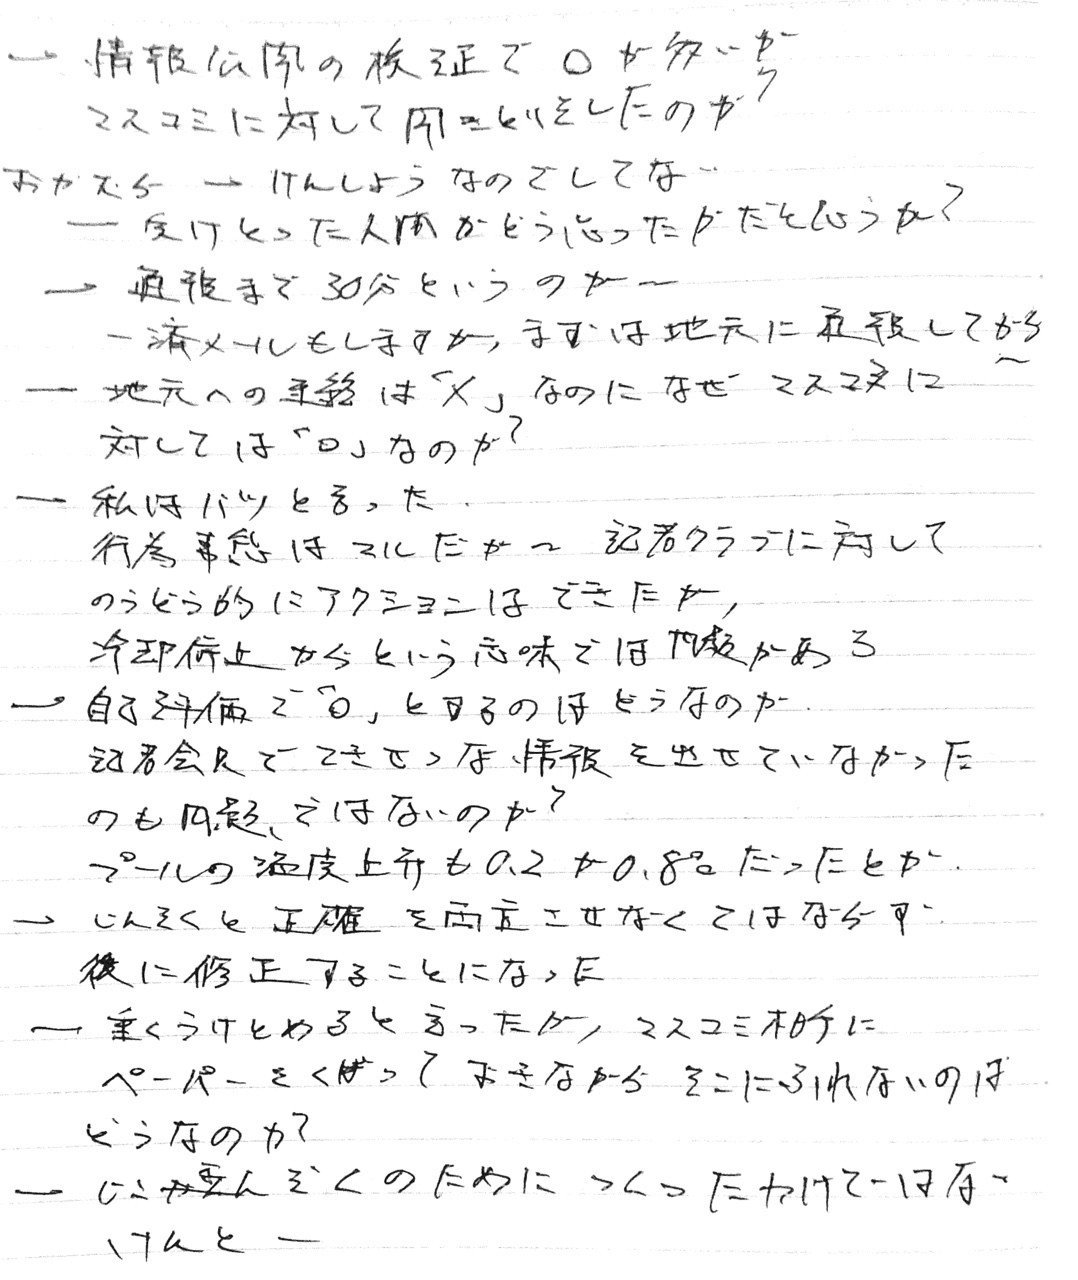 → 情報公開の検証で ○が多いが
マスコミに対して 聞きとりをしたのか?
→ けんしょうなのでしてない
― 受けとった人間がどう思ったかだと思うが?
→ 通報まで 30分というのが〜
一済メールもしますが, まずは地元に通報してから
― 地元への連絡は「×」なのになぜ マスコミに
対しては「○」なのか?
― 私はバツと言った.
行為事態はマルだが〜 記者クラブに対して
のうどう的にアクションはできたが,
冷却停止からという意味では問題がある
→ 自己評価で「○」とするのはどうなのか.
記者会見で てきせつな情報を出せていなかった
のも問題、ではないのか?
プールの温度上昇も0.2が0.8°だったとか.
→ じんそくと正確を両立させなくてはならず.
後に修正することになった
― 重くうけとめると言ったが, マスコミ相手に
ペーパーをくばっておきながら そこにふれないのは
どうなのか?
ぞくのためにつくったわけではない
けんと ―